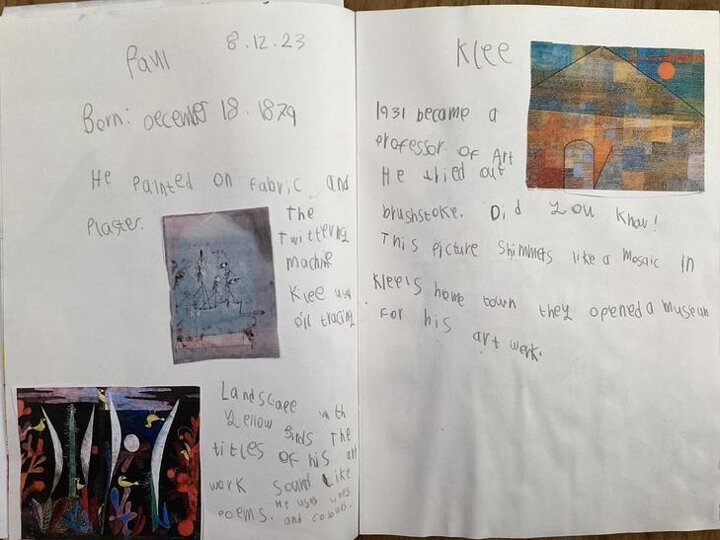 Paul
8.12.23
Born: December 18.1879
He Painted on Fabric and
Plaster.
The
Twittering
machine
Klee use
oil tracing
Landscape with
Yellow Birds The
titles of his art
work sound like
poems. He uses lines
and colours.
Klee
1931 became a
Professor of Art
He tried out
brushstoke. Did you know!
This picture shimmers like a mosaic In
Klee's home town they opened a museum
For his
art work.